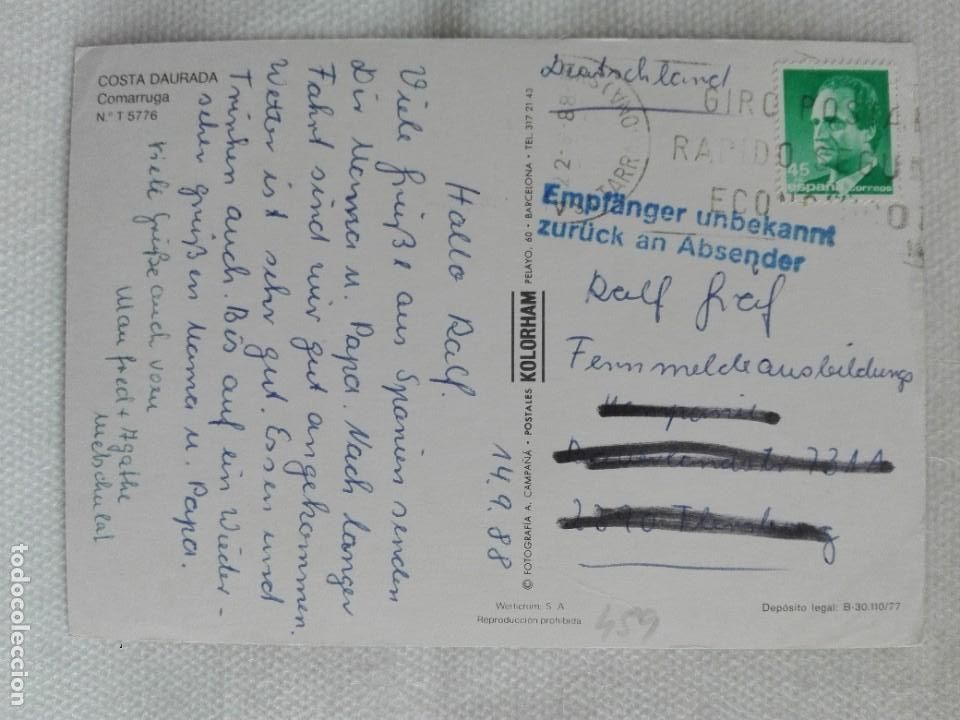 COSTA DAURADA
Comarruga
N.º T 5776
14.9.88
Hallo Ralf.
Viele Grüße aus Spanien senden
Dir Mama u. Papa. Nach langer
Fahrt sind wir gut angekommen.
Wetter ist sehr gut. Essen und
Trinken auch. Bis auf ein Wieder-
sehen grüßen Mama u. Papa.
viele Grüße auch von
Manfred + Agathe
© FOTOGRAFIA A. CAMPAÑÁ - POSTALES KOLORHAM PELAYO, 60 - BARCELONA - TEL. 317 21 43
Deutschland
22
88
TARR
GIRO POSTAL
RAPIDO
ECONO
45
españa correos
Empfänger unbekannt
zurück an Absender
Ralf Graf
Fernmeldeausbildungs
Flensburg
Depósito legal: B-30.110/77
Reproducción prohibida
459
todocoleccion
todocoleccion.net